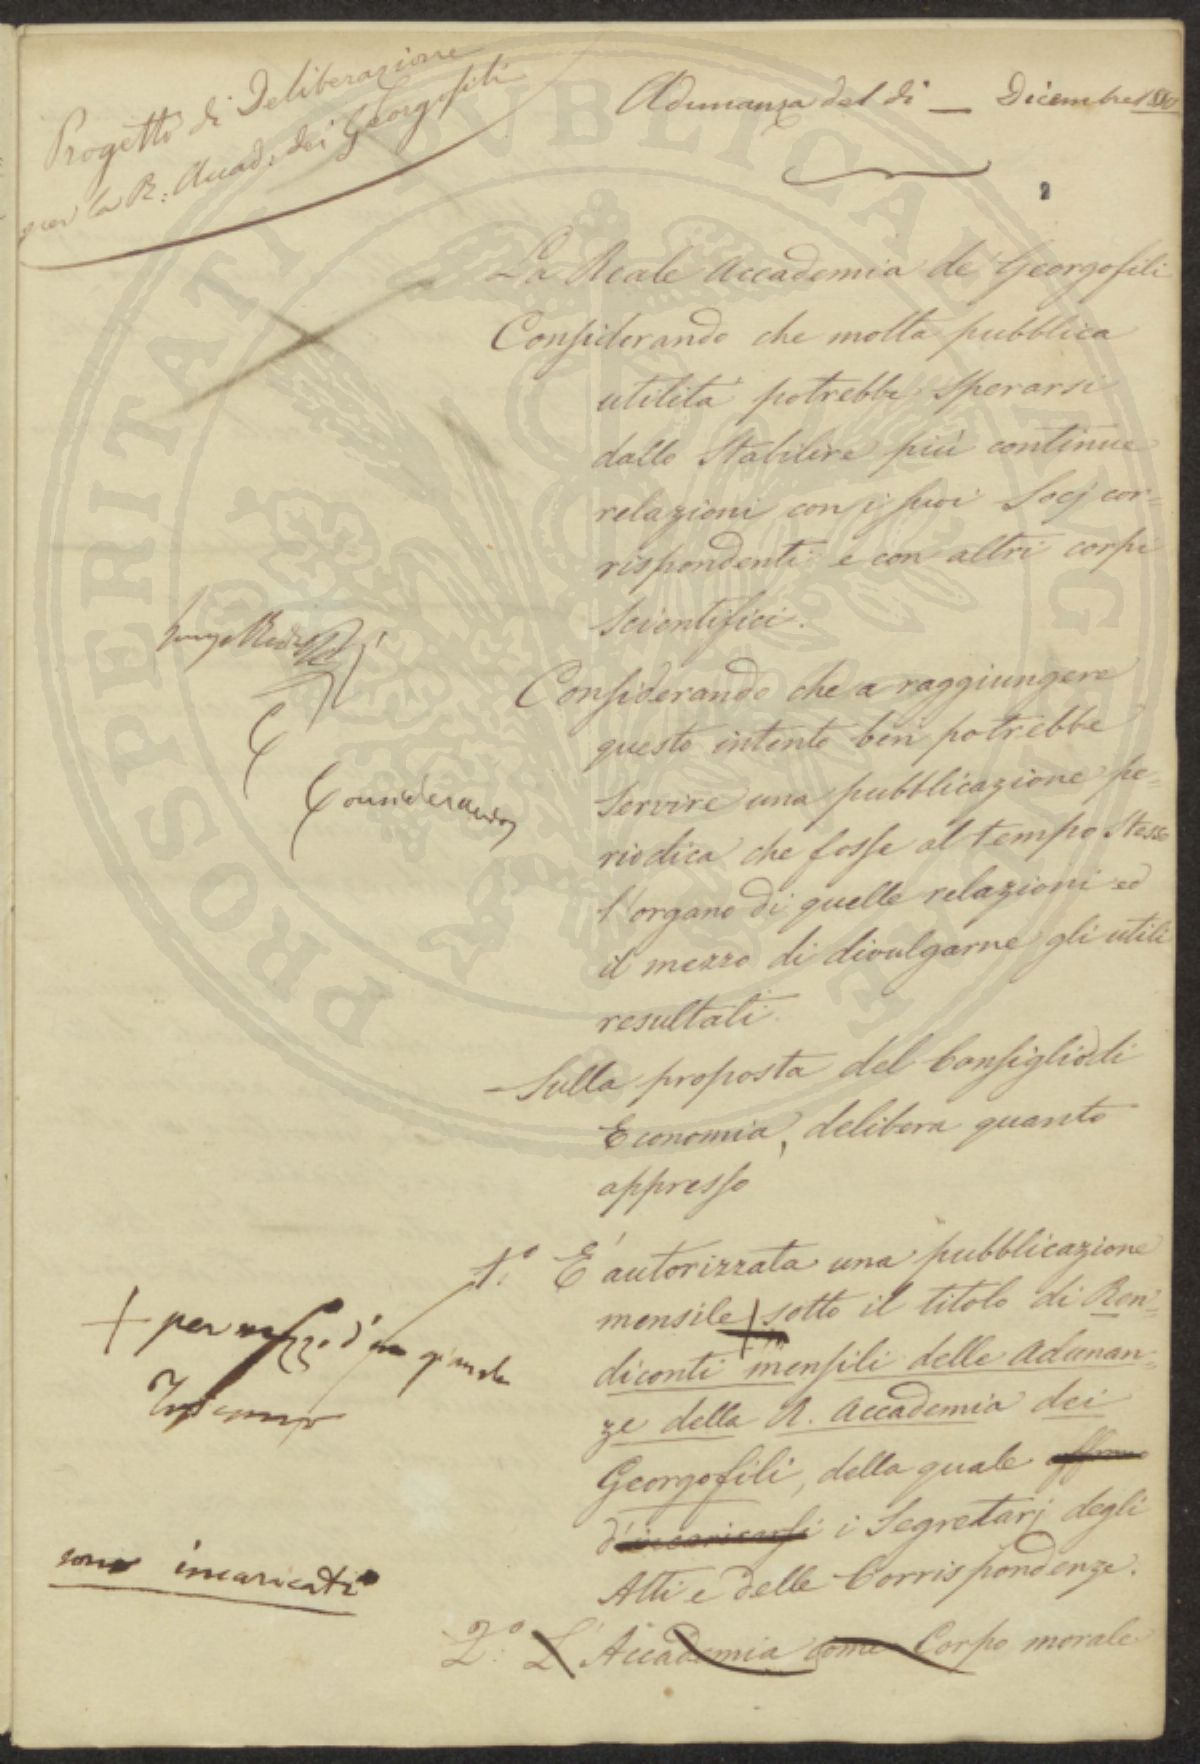 Progetto di Deliberazione
per la R. Accad. dei Georgofili
Adunanza del di — Dicembre
2
La Reale Accademia de' Georgofili
Considerando che molta pubblica
utilità potrebbe sperarsi
dallo stabilire più continue
relazioni con i suoi Socj cor=
rispondenti e con altri corpi
scientifici.
Considerando che a raggiungere
questo intento ben potrebbe
servire una pubblicazione pe=
riodica che fosse al tempo stesso
l'organo di quelle relazioni ed
il mezzo di divulgarne gli utili
resultati.
Considerando
Sulla proposta del Consiglio di
Economia, delibera quanto
appresso
1.° E' autorizzata una pubblicazione
mensile + sotto il titolo di Ren=
diconti mensili delle Adunan=
ze della R. Accademia dei
Georgofili, della quale
d'incaricarsi i Segretarj degli
Atti e delle Corrispondenze.
+ per mezzo d'un giornale
Toscano
sono incaricati
2.° L'Accademia come Corpo morale
PROSPERITATI PUBLICAE AUGENDAE